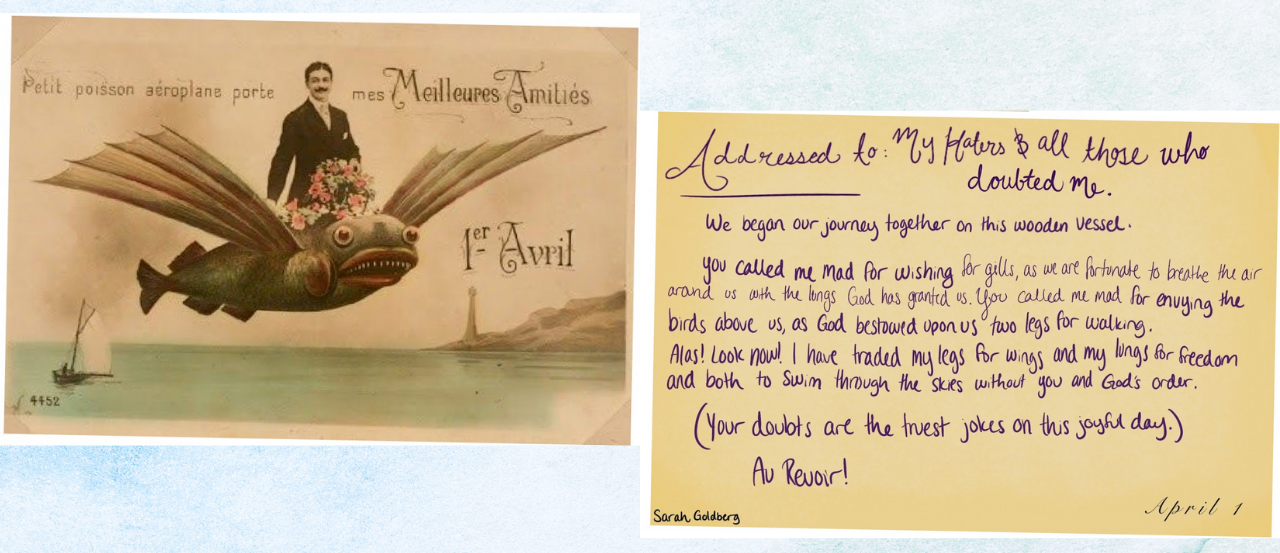 Petit poisson aéroplane porte mes Meilleures Amitiés
1er Avril
4452
Addressed to: My Haters & all those who
doubted me.
We began our journey together on this wooden vessel.
You called me mad for wishing for gills, as we are fortunate to breathe the air
around us with the lungs God has granted us. You called me mad for envying the
birds above us, as God bestowed upon us two legs for walking.
Alas! Look now! I have traded my legs for wings and my lungs for freedom
and both to swim through the skies without you and God's order.
(Your doubts are the truest jokes on this joyful day.)
Au Revoir!
Sarah Goldberg
April 1